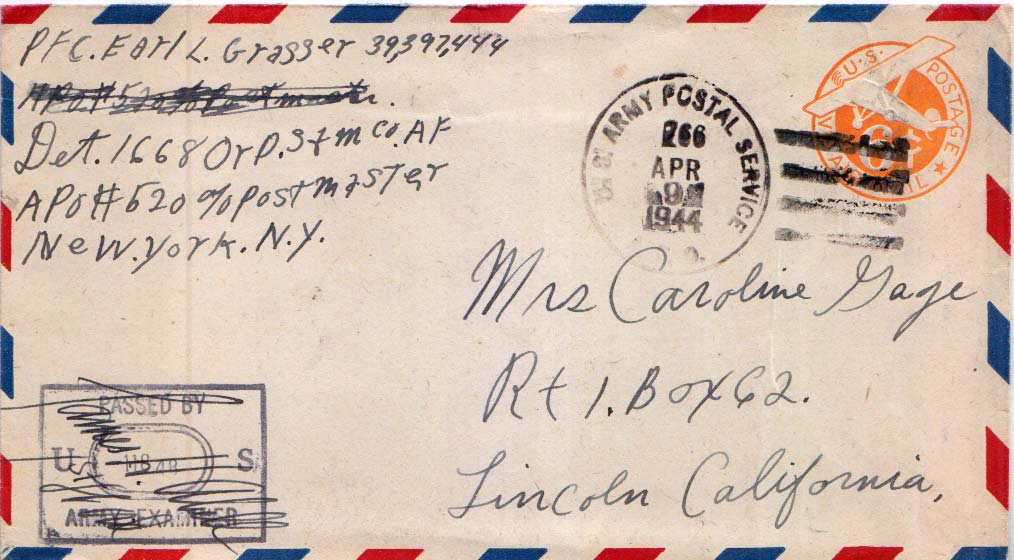 PFC. Earl L. Grasser 39,397,444
APO#520 % Postmaster.
Det. 1668 Orp. S+m Co. AF
APO# 520 % Postmaster
New. York. N.Y.
U.S. ARMY POSTAL SERVICE
APR
1944
U.S. POSTAGE
6¢
VIA AIR MAIL
Mrs Caroline Gage
Rt 1. Box 62.
Lincoln California,
PASSED BY
U S
ARMY EXAMINER